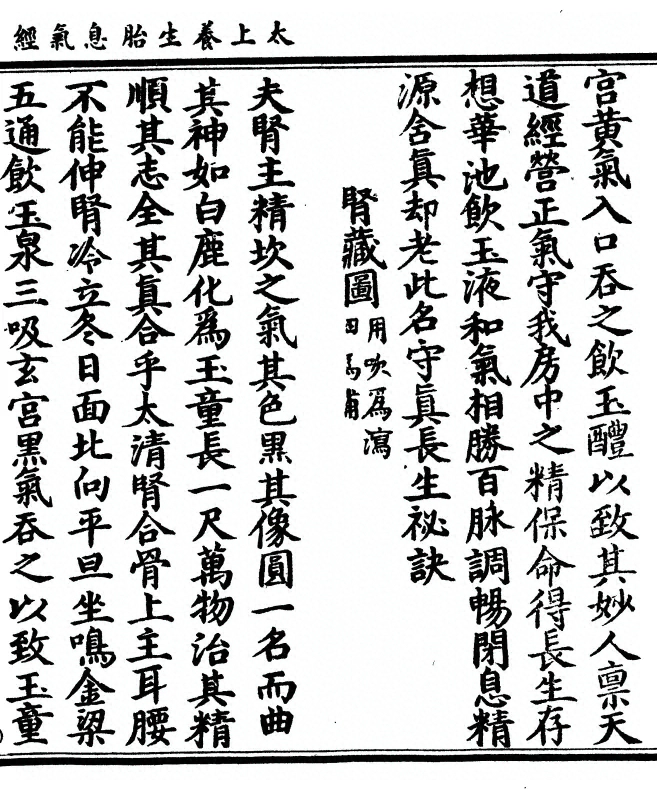 太上養生胎息氣經
宮黃氣入口吞之飲玉醴以致其妙人禀天
道經營正氣守我房中之精保命得長生存
想華池飲玉液和氣相勝百脉調暢閉息精
源含眞却老此名守眞長生祕訣
腎藏圖
用吹爲瀉
夫腎主精坎之氣其色黑其像圓一名而曲
其神如白鹿化爲玉童長一尺萬物治其精
順其志全其眞合乎太清腎合骨上主耳腰
不能伸腎冷立冬日面北向平旦坐鳴金梁
五通飲玉泉三吸玄宮黑氣吞之以致玉童